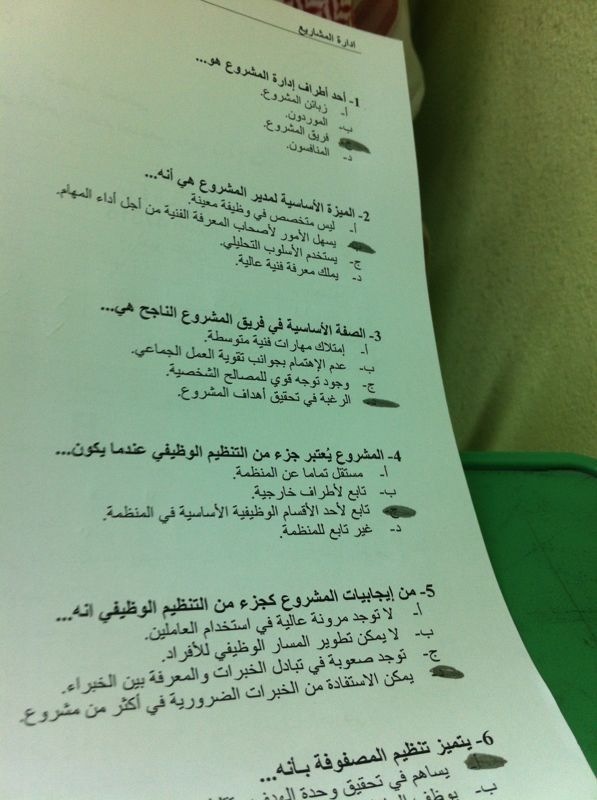 ادارة المشاريع
1- أحد أطراف إدارة المشروع هو...
أ- زبائن المشروع.
ب- الموردون.
ج- فريق المشروع.
د- المنافسون.
2- الميزة الأساسية لمدير المشروع هي أنه...
أ- ليس متخصص في وظيفة معينة.
يسهل الأمور لأصحاب المعرفة الفنية من أجل أداء المهام.
ج- يستخدم الأسلوب التحليلي.
د- يملك معرفة فنية عالية.
3- الصفة الأساسية في فريق المشروع الناجح هي...
أ- إمتلاك مهارات فنية متوسطة.
ب- عدم الإهتمام بجوانب تقوية العمل الجماعي.
ج- وجود توجه قوي للمصالح الشخصية.
الرغبة في تحقيق أهداف المشروع.
4- المشروع يُعتبر جزء من التنظيم الوظيفي عندما يكون...
أ- مستقل تماما عن المنظمة.
ب- تابع لأطراف خارجية.
ج- تابع لأحد الأقسام الوظيفية الأساسية في المنظمة.
د- غير تابع للمنظمة.
5- من إيجابيات المشروع كجزء من التنظيم الوظيفي انه...
أ- لا توجد مرونة عالية في استخدام العاملين.
ب- لا يمكن تطوير المسار الوظيفي للأفراد.
ج- توجد صعوبة في تبادل الخبرات والمعرفة بين الخبراء.
يمكن الاستفادة من الخبرات الضرورية في أكثر من مشروع.
6- يتميز تنظيم المصفوفة بـأنه...
يساهم في تحقيق وحدة الهدف
ب- يوظف